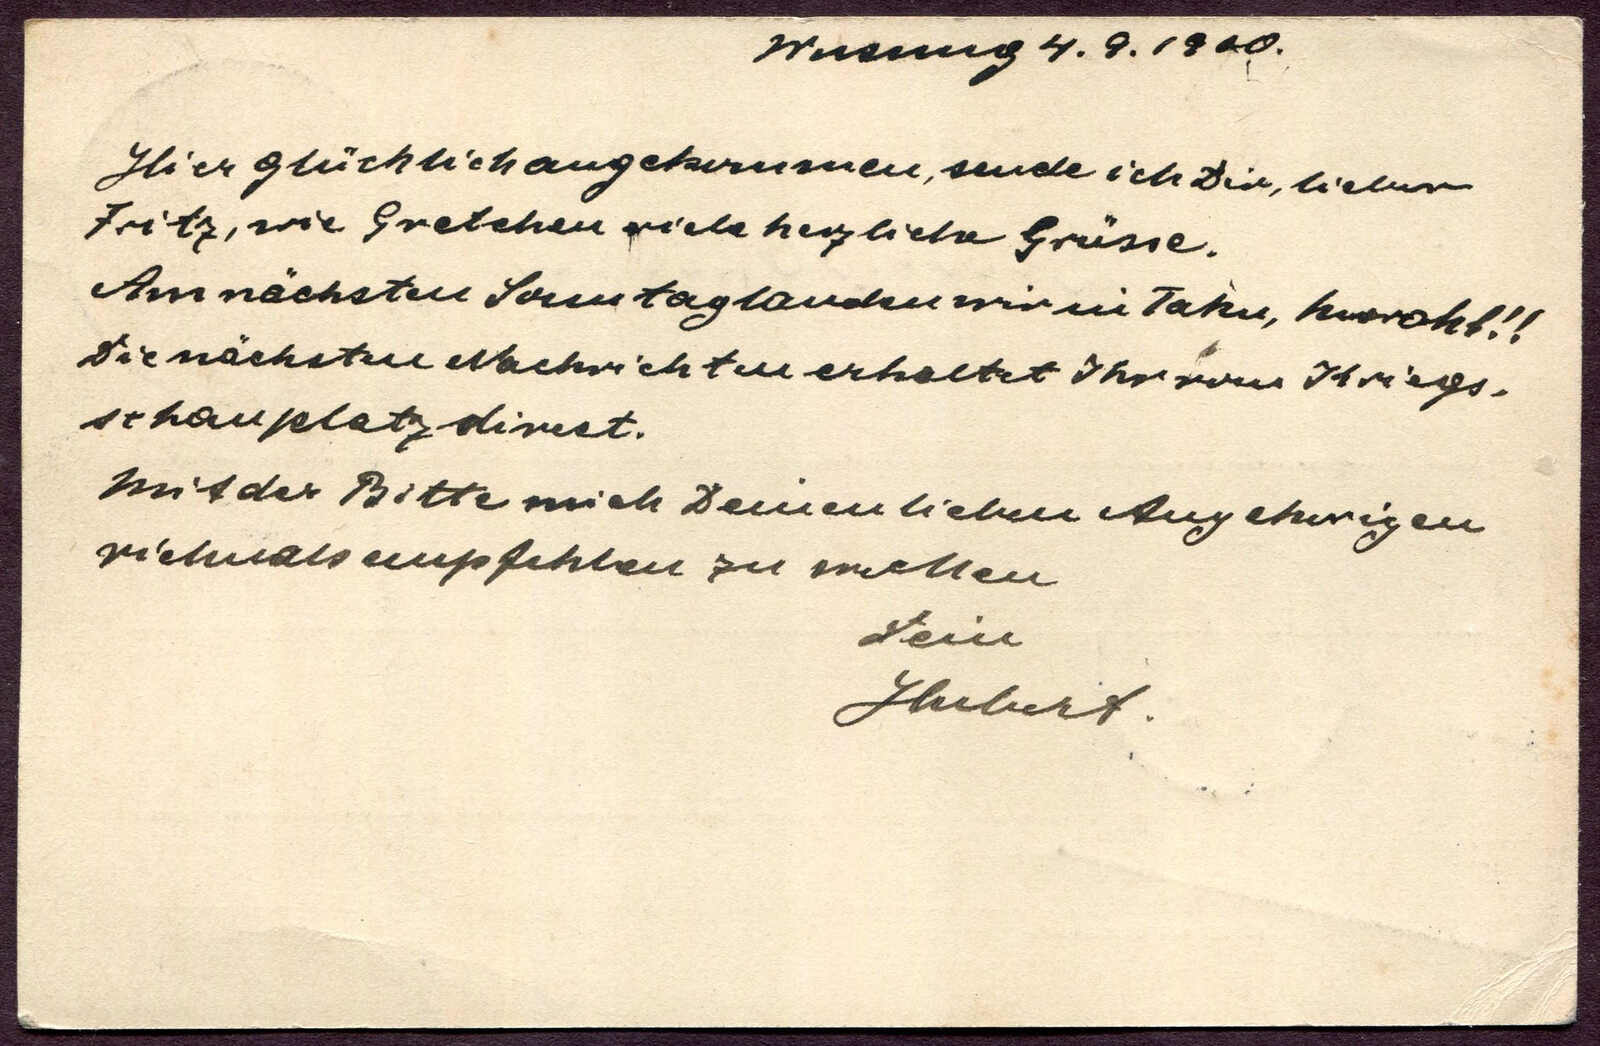 Wusung 4. 9. 1900.
Hier glücklich angekommen, sende ich Dir, lieber
Fritz, wie Gretchen viele herzliche Grüsse.
Am nächsten Sonntag landen wir in Taku, hurrah!!!
Die nächsten Nachrichten erhaltet Ihr vom Kriegs-
schauplatz direct.
Mit der Bitte mich Deinen lieben Angehörigen
vielmals empfehlen zu wollen
Dein
Hubert.